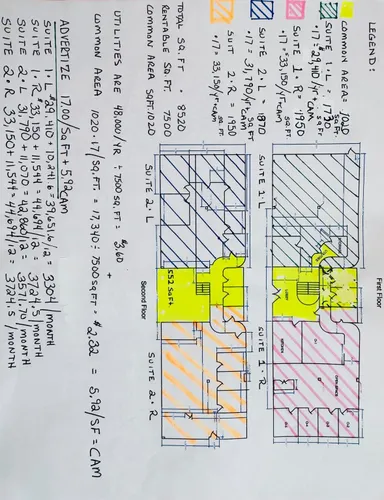 LEGEND:
COMMON AREA = 1020 SQ FT
SUITE 1·L = 1730 SQ FT
·17 = 29,410/YR+CAM
SUITE 1·R = 1950 SQ FT
·17 = 33,150/YR+CAM
SUITE 2·L = 1870 SQ FT
·17 = 31,790/YR+CAM
SUIT 2·R = 1950 SQ FT
·17 = 33,150/YR+CAM
First Floor
SUITE 1·L
SUITE 1·R
Second Floor
SUITE 2·L
552 SQ FT
SUITE 2·R
TOTAL SQ. FT · 8520
RENTABLE SQ. FT. 7500
COMMON AREA SQFT. 1020
UTILITIES ARE 48,000/YR ÷ 7500 SQ FT. = $3.60
+
COMMON AREA 1020·17/SQ.FT. = 17,340 ÷ 7500 SQFT = $2.32 = 5.92/SF = CAM
ADVERTIZE 17.00/SQ FT + 5.92 CAM
SUITE 1·L $29,410 + 10,241.6 = 39,651.6/12 = 3304/MONTH
SUITE 1·R $33,150 + 11,544 = 44,694/12 = 3724.5/MONTH
SUITE 2·L 31,790 + 11,070 = 42,860/12 = 3571.70/MONTH
SUITE 2·R 33,150 + 11,544 = 44,694/12 = 3724.5/MONTH